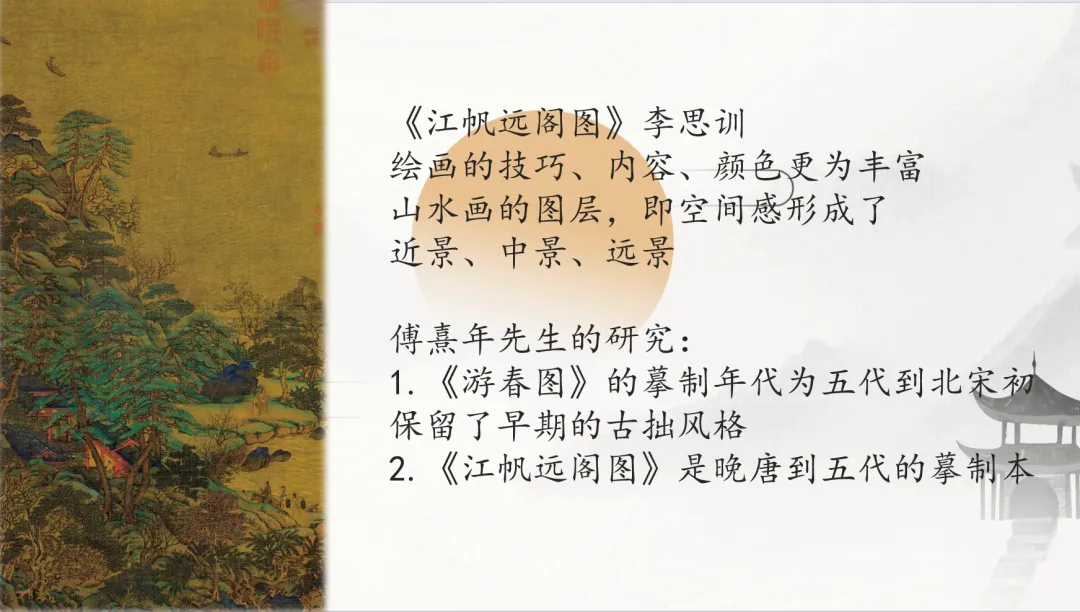 《江帆远阁图》李思训
绘画的技巧、内容、颜色更为丰富
山水画的图层，即空间感形成了
近景、中景、远景
傅熹年先生的研究：
1.《游春图》的摹制年代为五代到北宋初
保留了早期的古拙风格
2.《江帆远阁图》是晚唐到五代的摹制本